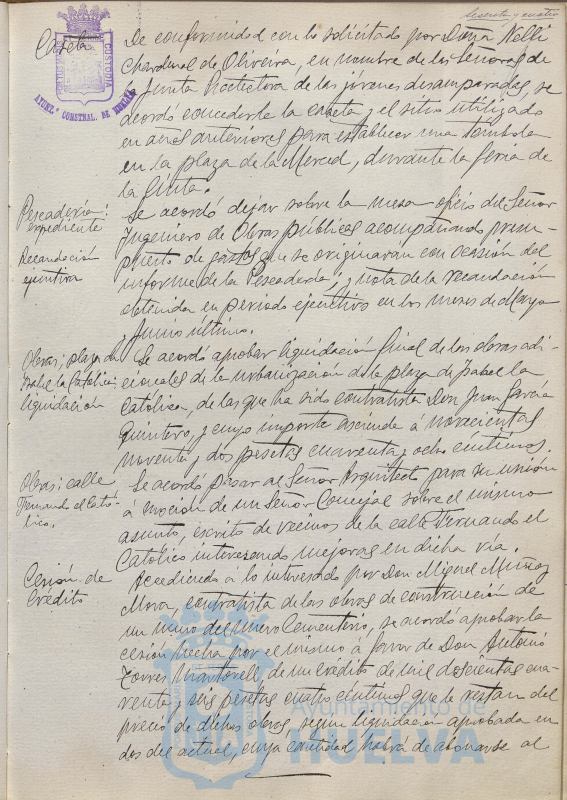 sesenta y cuatro
Caseta
De conformidad con lo solicitado por Doña Nelli
Chardenal de Oliveira, en nombre de las Señoras de
la Junta Protectora de las jóvenes desamparadas, se
acordó concederle la caseta y el sitio utilizado
en años anteriores para establecer una tómbola
en la plaza de la Merced, durante la feria de
la Cinta.
CUSTODIA
AYUNT.º CONSTNAL. DE HUELVA
Pescadería:
expediente
Recaudación
ejecutiva
Se acordó dejar sobre la mesa oficio del Señor
Ingeniero de Obras públicas acompañando presu-
puesto de gastos que se originaran con ocasión del
informe de la Pescadería, y nota de la recaudación
obtenida en periodo ejecutivo en los meses de Mayo
y Junio último.
Obras; plaza de
Isabel la Católica:
liquidación
Se acordó aprobar liquidación final de las obras adi-
cionales de la urbanización de la plaza de Isabel la
Católica, de las que ha sido contratista Don Juan García
Quintero, y cuyo importe asciende á novecientas
noventa y dos pesetas cuarenta y ocho céntimos.
Obras; calle
Fernando el Cató-
lico.
Se acordó pasar al Señor Arquitecto para su unión
a moción de un Señor Concejal sobre el mismo
asunto, escrito de vecinos de la calle Fernando el
Católico interesando mejoras en dicha vía.
Cesión de
crédito
Accediendo a lo interesado por Don Miguel Muñoz
Mora, contratista de las obras de construcción de
un muro del nuevo Cementerio, se acordó aprobar la
cesión hecha por el mismo á favor de Don Antonio
Torres Martorell, de un crédito de mil doscientas cua-
renta y seis pesetas cuatro céntimos que le restan del
precio de dichas obras, según liquidación aprobada en
dos del actual, cuya cantidad habrá de abonarse al
Ayuntamiento de
HUELVA